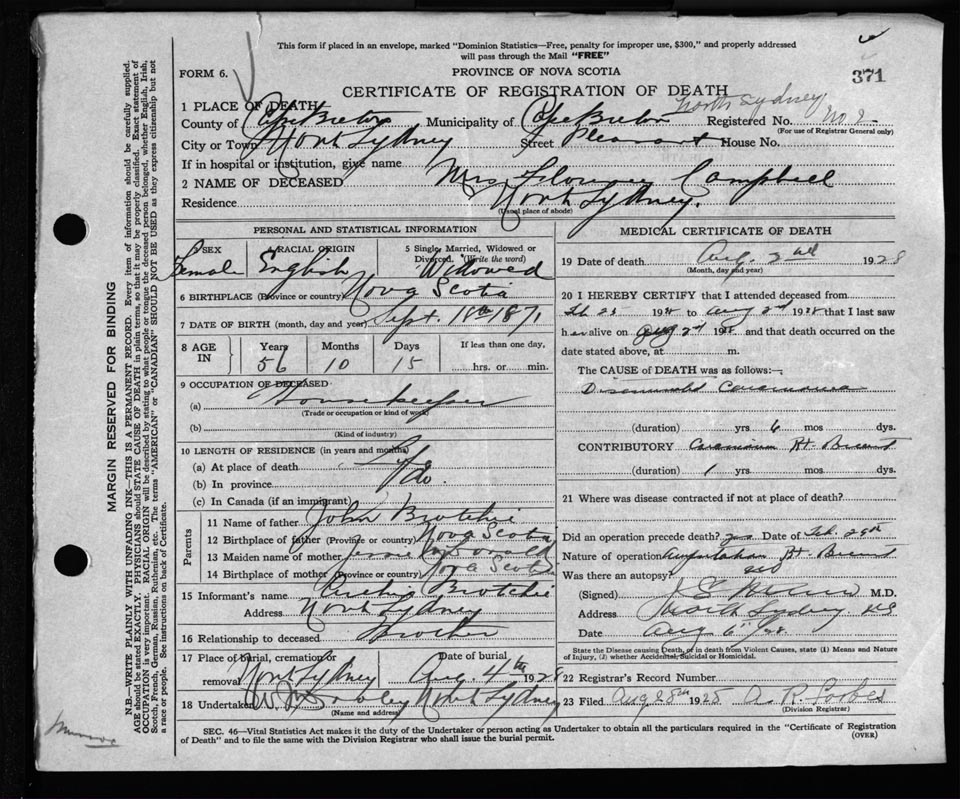 This form if placed in an envelope, marked "Dominion Statistics—Free, penalty for improper use, $300," and properly addressed
will pass through the Mail "FREE"
FORM 6.
PROVINCE OF NOVA SCOTIA
371
CERTIFICATE OF REGISTRATION OF DEATH
North Sydney
1 PLACE OF DEATH
County of Cape Breton Municipality of Cape Breton Registered No. No 2
(For use of Registrar General only)
City or Town North Sydney Street Pleasant House No.
If in hospital or institution, give name
2 NAME OF DECEASED Mrs Florence Campbell
Residence North Sydney.
(Usual place of abode)
PERSONAL AND STATISTICAL INFORMATION
3 SEX 4 RACIAL ORIGIN 5 Single, Married, Widowed or
Divorced. (Write the word)
Female English Widowed
6 BIRTHPLACE (Province or country) Nova Scotia
7 DATE OF BIRTH (month, day and year) Sept. 18th 1871
8 AGE IN Years Months Days If less than one day,
56 10 15 hrs. or min.
9 OCCUPATION OF DECEASED
(a) Housekeeper
(Trade or occupation or kind of work)
(b)
(Kind of industry)
10 LENGTH OF RESIDENCE (in years and months)
(a) At place of death Life
(b) In province do.
(c) In Canada (if an immigrant)
Parents
11 Name of father John Brotchie
12 Birthplace of father (Province or country) Nova Scotia
13 Maiden name of mother Jessie McDonald
14 Birthplace of mother (Province or country) Nova Scotia
15 Informant's name Brotchie
Address North Sydney
16 Relationship to deceased Brother
17 Place of burial, cremation or Date of burial
removal North Sydney Aug. 4th 1928
18 Undertaker North Sydney
(Name and address)
MEDICAL CERTIFICATE OF DEATH
19 Date of death Aug. 2nd 1928
(Month, day and year)
20 I HEREBY CERTIFY that I attended deceased from
Feb 23 1928 to Aug 2nd 1928 that I last saw
her alive on Aug 2nd 1928 and that death occurred on the
date stated above, at m.
The CAUSE of DEATH was as follows:—
Disseminated Carcinoma
(duration) yrs 6 mos dys.
CONTRIBUTORY Carcinoma Rt. Breast
(duration) 1 yrs mos dys.
21 Where was disease contracted if not at place of death?
Did an operation precede death? yes Date of Feb. 29th
Nature of operation Amputation Rt Breast
Was there an autopsy? no
(Signed) M.D.
Address North Sydney NS
Date Aug 6"/28.
State the Disease causing Death, or in death from Violent Causes, state (1) Means and Nature
of Injury, (2) whether Accidental, Suicidal or Homicidal.
22 Registrar's Record Number
23 Filed Aug 1925 A. R. Forbes
(Division Registrar)
SEC. 46—Vital Statistics Act makes it the duty of the Undertaker or person acting as Undertaker to obtain all the particulars required in the "Certificate of Registration
of Death" and to file the same with the Division Registrar who shall issue the burial permit.
(OVER)
MARGIN RESERVED FOR BINDING
N.B.—WRITE PLAINLY WITH UNFADING INK—THIS IS A PERMANENT RECORD. Every item of information should be carefully supplied.
AGE should be stated EXACTLY. PHYSICIANS should STATE CAUSE OF DEATH in plain terms, so that it may be properly classified. Exact statement of
OCCUPATION is very important. RACIAL ORIGIN will be described by stating to what people or tongue the deceased person belonged, whether English, Irish,
Scotch, French, German, Russian, Ruthenian, etc. The terms "AMERICAN" or "CANADIAN" SHOULD NOT BE USED as they express citizenship but not
a race or people. See instructions on back of Certificate.